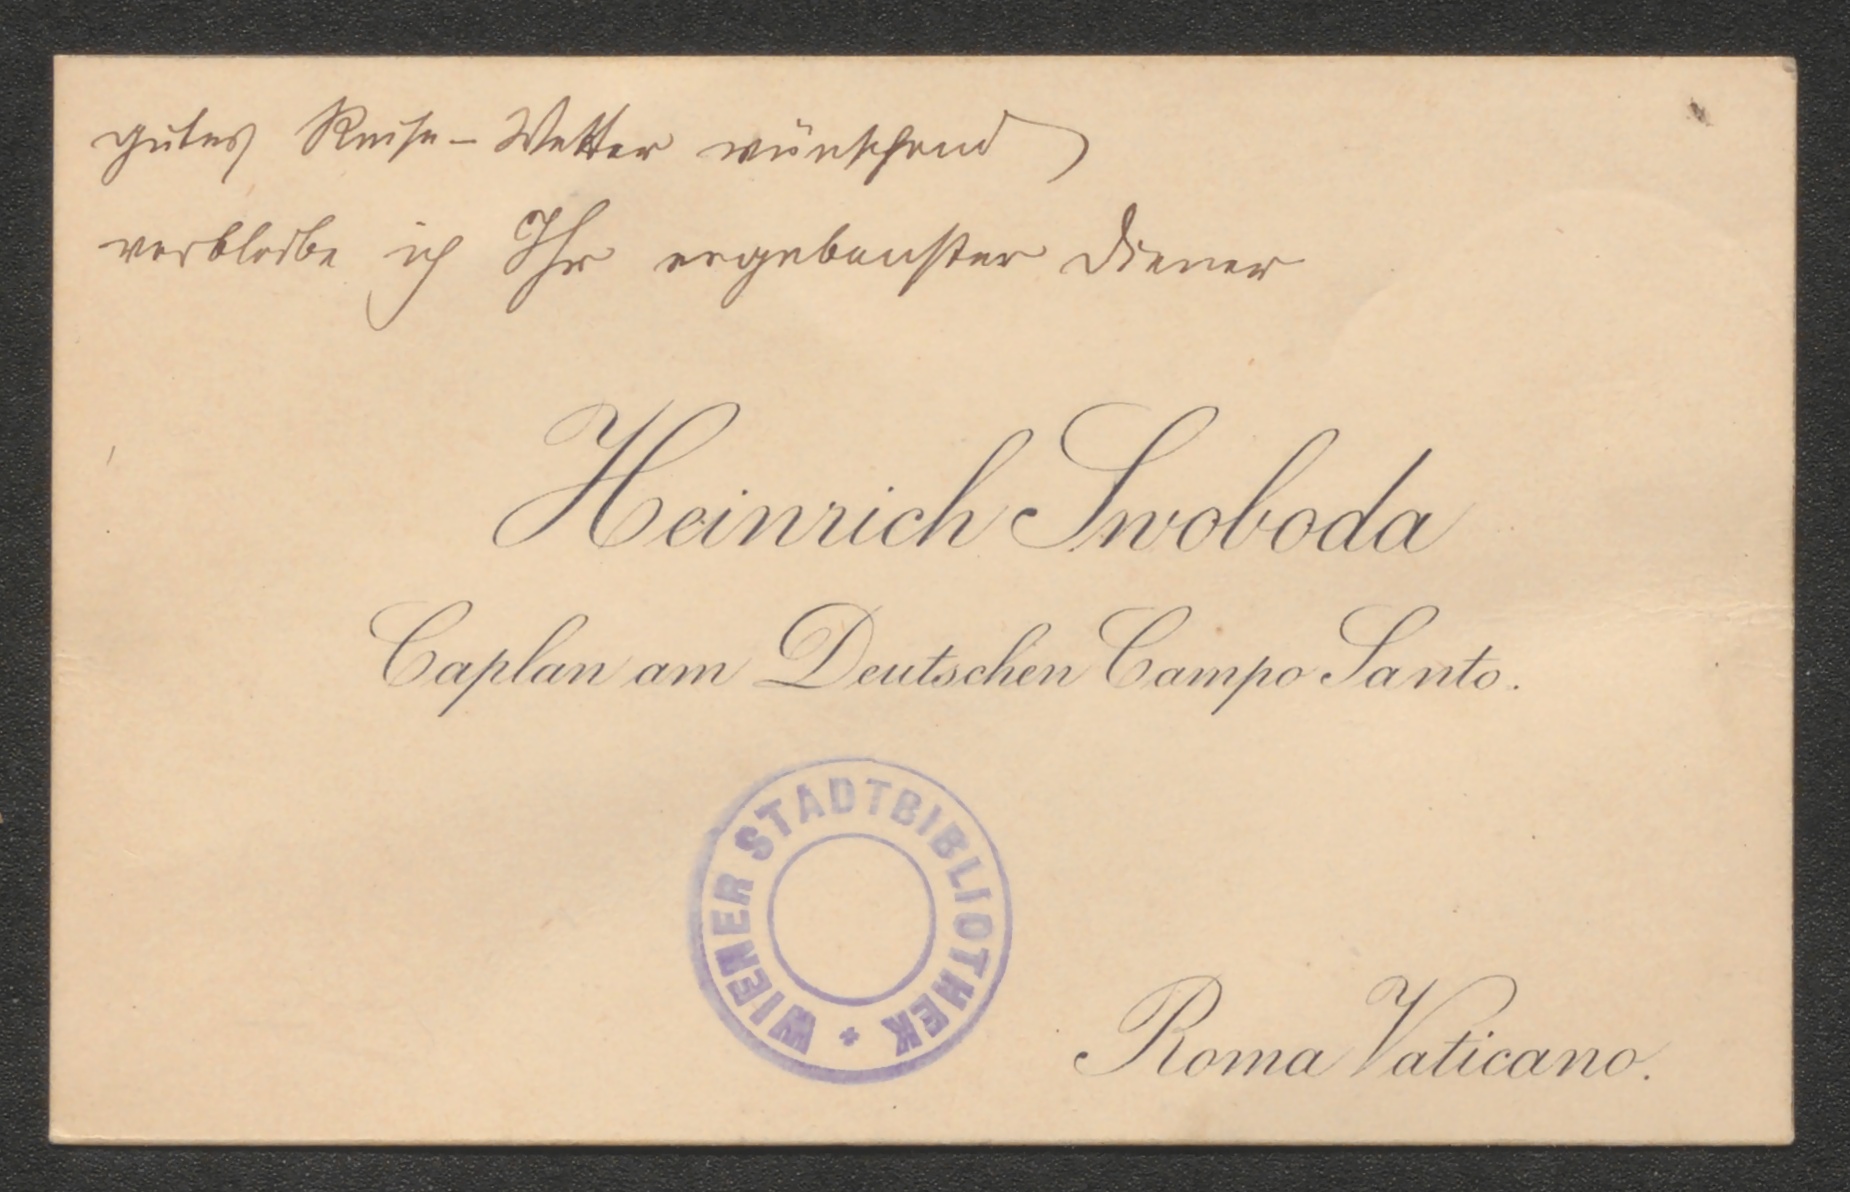 gutes Reise-Wetter wünschend
verbleibe ich Ihr ergebenster Diener
Heinrich Swoboda
Caplan am Deutschen Campo Santo.
WIENER STADTBIBLIOTHEK *
Roma Vaticano.